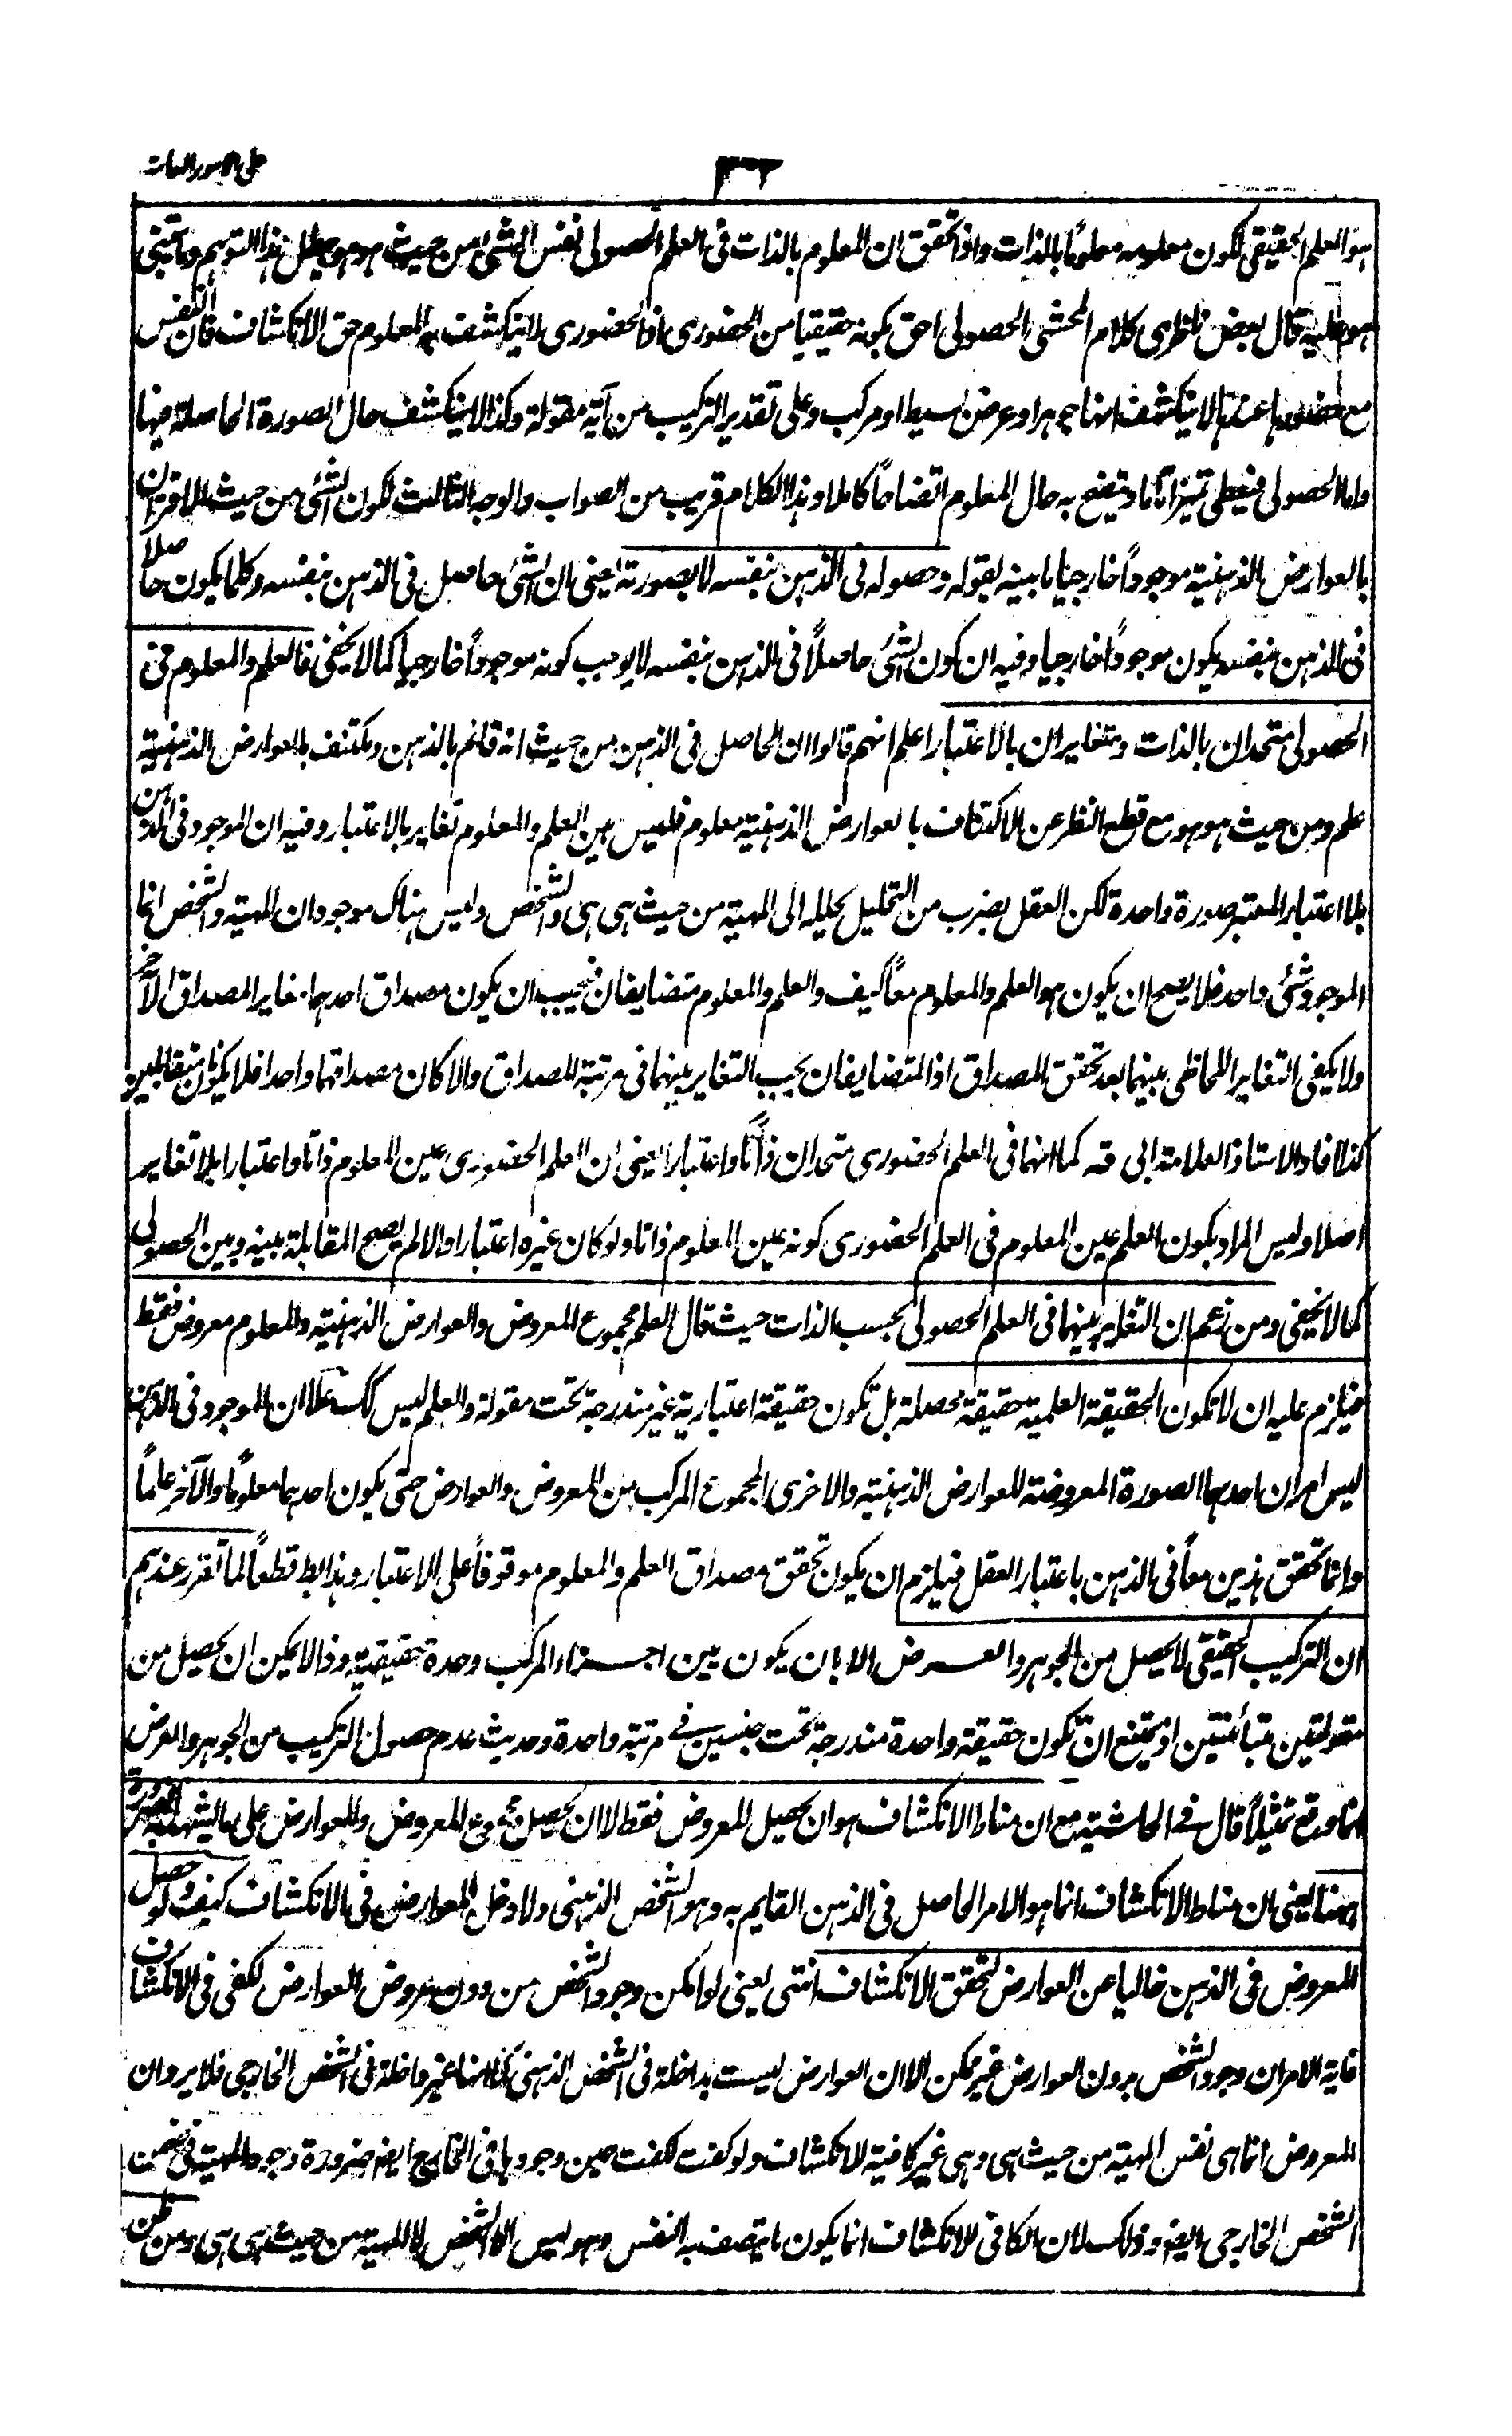 على الامور العامة
٣٦
هو العلم الحقيقى لكون معلومه معلومًا بالذات واذا تحقق ان المعلوم بالذات فى العلم الحصولى نفس الشئ من حيث هو هو بطل هذا التوهم وما يتبنى
هو عليه قال بعض ناظرى كلام المحشى الحصولى احق بكونه حقيقيا من الحضورى اذ الحضورى لا ينكشف به المعلوم حق الانكشاف فان النفس
مع حضورها عندها لا ينكشف انها جوهر او عرض بسيط او مركب وعلى تقدير التركيب من آية مقولة وكذا لا ينكشف حال الصورة الحاصلة فيها
واما الحصولى فيعطى تميزا تاما ويتضح به حال المعلوم اتضاحًا كاملا وهذا الكلام قريب من الصواب والوجه الثالث لكون الشئ من حيث الاقتران
بالعوارض الذهنية موجوداً خارجيا ما بينه بقوله وحصوله فى الذهن بنفسه لا بصورته يعنى ان الشئ حاصل فى الذهن بنفسه وكلما يكون حاصلا
فى الذهن بنفسه يكون موجوداً خارجيا وفيه ان كون الشئ حاصلاً فى الذهن بنفسه لا يوجب كونه موجوداً خارجيا كما لا يخفى فالعلم والمعلوم فى
الحصولى متحدان بالذات ومتغايران بالاعتبار اعلم انهم قالوا ان الحاصل فى الذهن من حيث انه قائم بالذهن ومكتنف بالعوارض الذهنية
علم ومن حيث هو هو مع قطع النظر عن الاكتناف بالعوارض الذهنية معلوم فليس بين العلم والمعلوم تغاير بالاعتبار وفيه ان الموجود فى الذهن
بلا اعتبار المعتبر صورة واحدة لكن العقل بضرب من التحليل يحلله الى المهية من حيث هى هى والتشخص وليس هناك موجودان المهية والتشخص انما
الموجود شئ واحد فلا يصح ان يكون هو العلم والمعلوم معاً كيف والعلم والمعلوم متضايفان فيجب ان يكون مصداق احدهما مغاير المصداق الآخر
ولا يكفى التغاير اللحاظى بينهما بعد تحقق المصداق اذ المتضايفان يجب التغاير بينهما فى مرتبة المصداق والا كان مصداقهما واحدا فلا يكونان متقابلين
كذا افاد الاستاذ العلامة ابى قه كما انهما فى العلم الحضورى متحدان ذاتًا واعتبارا يعنى ان العلم الحضورى عين المعلوم ذاتا واعتبارا بلا تغاير
اصلا وليس المراد بكون العلم عين المعلوم فى العلم الحضورى كونه عين المعلوم ذاتا ولو كان غيره اعتبارا والا لم يصح المقابلة بينه وبين الحصولى
كما لا يخفى ومن زعم ان التغاير بينهما فى العلم الحصولى بحسب الذات حيث قال العلم مجموع المعروض والعوارض الذهنية والمعلوم معروض فقط
فيلزم عليه ان لا تكون الحقيقة العلمية حقيقة محصلة بل تكون حقيقة اعتبارية غير مندرجة تحت مقولة والعلم ليس كك علا ان الموجود فى الذهن
ليس امران احدهما الصورة المعروضة للعوارض الذهنية والاخرى المجموع المركب من المعروض والعوارض حتى يكون احدهما معلومًا والآخر علماً
وانما تحقق هذين معاً فى الذهن باعتبار العقل فيلزم ان يكون تحقق مصداق العلم والمعلوم موقوفاً على الاعتبار وهذا بط قطعاً لما تقرر عندهم
ان التركيب الحقيقى لا يحصل من الجوهر والعرض الا بان يكون بين اجزاء المركب وحدة حقيقية وذا لا يمكن ان يحصل من
مقولتين متبائنتين اذ يمتنع ان تكون حقيقة واحدة مندرجة تحت جنسين فى مرتبة واحدة وحديث عدم حصول التركيب من الجوهر والعرض
انما وقع تمثيلاً قال فى الحاشية مع ان مناط الانكشاف هو ان يحصل المعروض فقط لا ان يحصل مجموع المعروض والعوارض على ما يشهد به الضرورة
ههنا يعنى ان مناط الانكشاف انما هو الامر الحاصل فى الذهن القايم به وهو الشخص الذهنى ولا دخل للعوارض فى الانكشاف كيف ولو حصل
المعروض فى الذهن خاليا عن العوارض لتحقق الانكشاف انتهى يعنى لو امكن وجود الشخص من دون عروض العوارض لكفى فى الانكشاف
غاية الامر ان وجود الشخص بدون العوارض غير ممكن الا ان العوارض ليست بداخلة فى الشخص الذهنى كما انها غير داخلة فى الشخص الخارجى فلا يرد ان
المعروض انما هى نفس المهية من حيث هى وهى غير كافية للانكشاف ولو كفت لكفت حين وجودها فى الخارج ايضه ضرورة وجود المهية فى ضمن
الشخص الخارجى ايضه وذلك لان الكافى للانكشاف انما يكون ما يتصف به النفس وهو ليس الا الشخص لا المهية من حيث هى هى ومن ظن